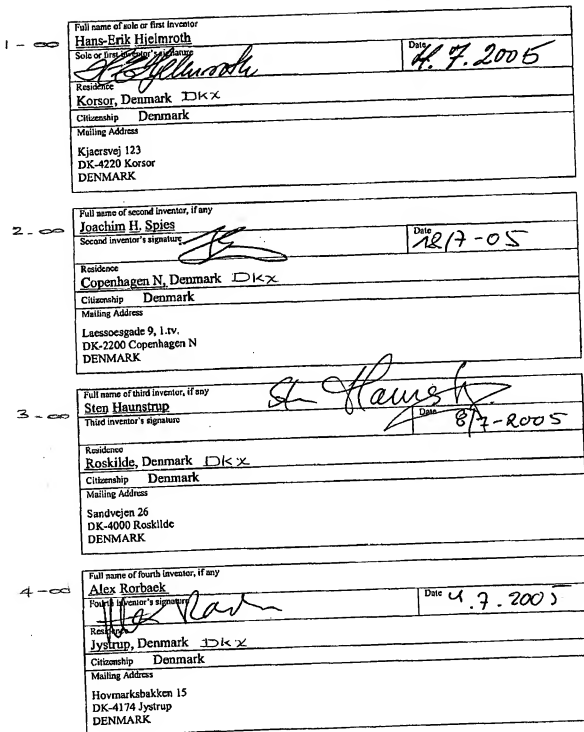 Full name of sole or first inventor
1 - ∞ Hans-Erik Hjelmroth
Sole or first inventor's signature Date 4. 7. 2005
Residence
Korsor, Denmark DKX
Citizenship Denmark
Mailing Address
Kjaersvej 123
DK-4220 Korsor
DENMARK
Full name of second inventor, if any
2 - ∞ Joachim H. Spies
Second inventor's signature Date 12/7-05
Residence
Copenhagen N, Denmark DKX
Citizenship Denmark
Mailing Address
Laessoesgade 9, 1.tv.
DK-2200 Copenhagen N
DENMARK
Full name of third inventor, if any
3 - ∞ Sten Haunstrup
Third inventor's signature Date 8/7-2005
Residence
Roskilde, Denmark DKX
Citizenship Denmark
Mailing Address
Sandvejen 26
DK-4000 Roskilde
DENMARK
Full name of fourth inventor, if any
4 - ∞ Alex Rorbaek
Fourth inventor's signature Date 4.7.2005
Residence
Jystrup, Denmark DKX
Citizenship Denmark
Mailing Address
Hovmarksbakken 15
DK-4174 Jystrup
DENMARK